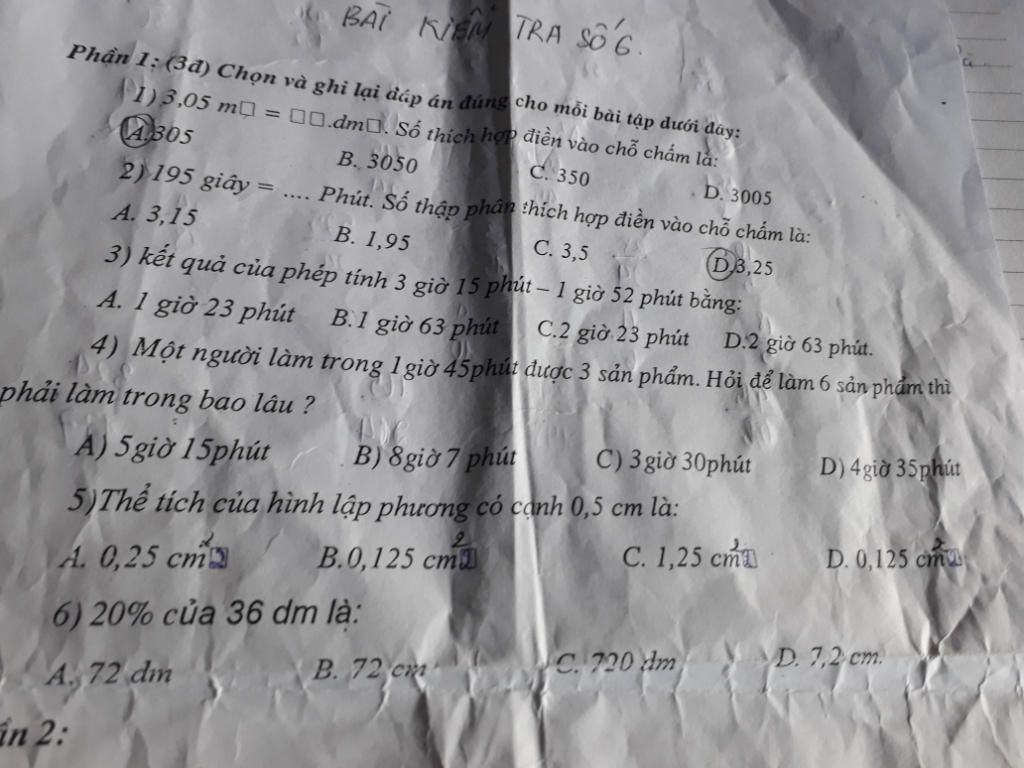 BÀI KIỂM TRA SỐ 6.
Phần 1: (3đ) Chọn và ghi lại đáp án đúng cho mỗi bài tập dưới đây:
1) 3,05 m□ = □□.dm□. Số thích hợp điền vào chỗ chấm là:
A.305 B. 3050 C. 350 D. 3005
2) 195 giây = .... Phút. Số thập phân thích hợp điền vào chỗ chấm là:
A. 3,15 B. 1,95 C. 3,5 D.3,25
3) kết quả của phép tính 3 giờ 15 phút – 1 giờ 52 phút bằng:
A. 1 giờ 23 phút B.1 giờ 63 phút C.2 giờ 23 phút D.2 giờ 63 phút.
4) Một người làm trong 1giờ 45phút được 3 sản phẩm. Hỏi để làm 6 sản phẩm thì
phải làm trong bao lâu ?
A) 5giờ 15phút B) 8giờ 7 phút C) 3giờ 30phút D) 4giờ 35phút
5)Thể tích của hình lập phương có cạnh 0,5 cm là:
A. 0,25 cm B.0,125 cm² C. 1,25 cm D. 0,125 cm
6) 20% của 36 dm là:
A. 72 dm B. 72 cm C. 720 dm D. 7,2 cm.
ần 2: